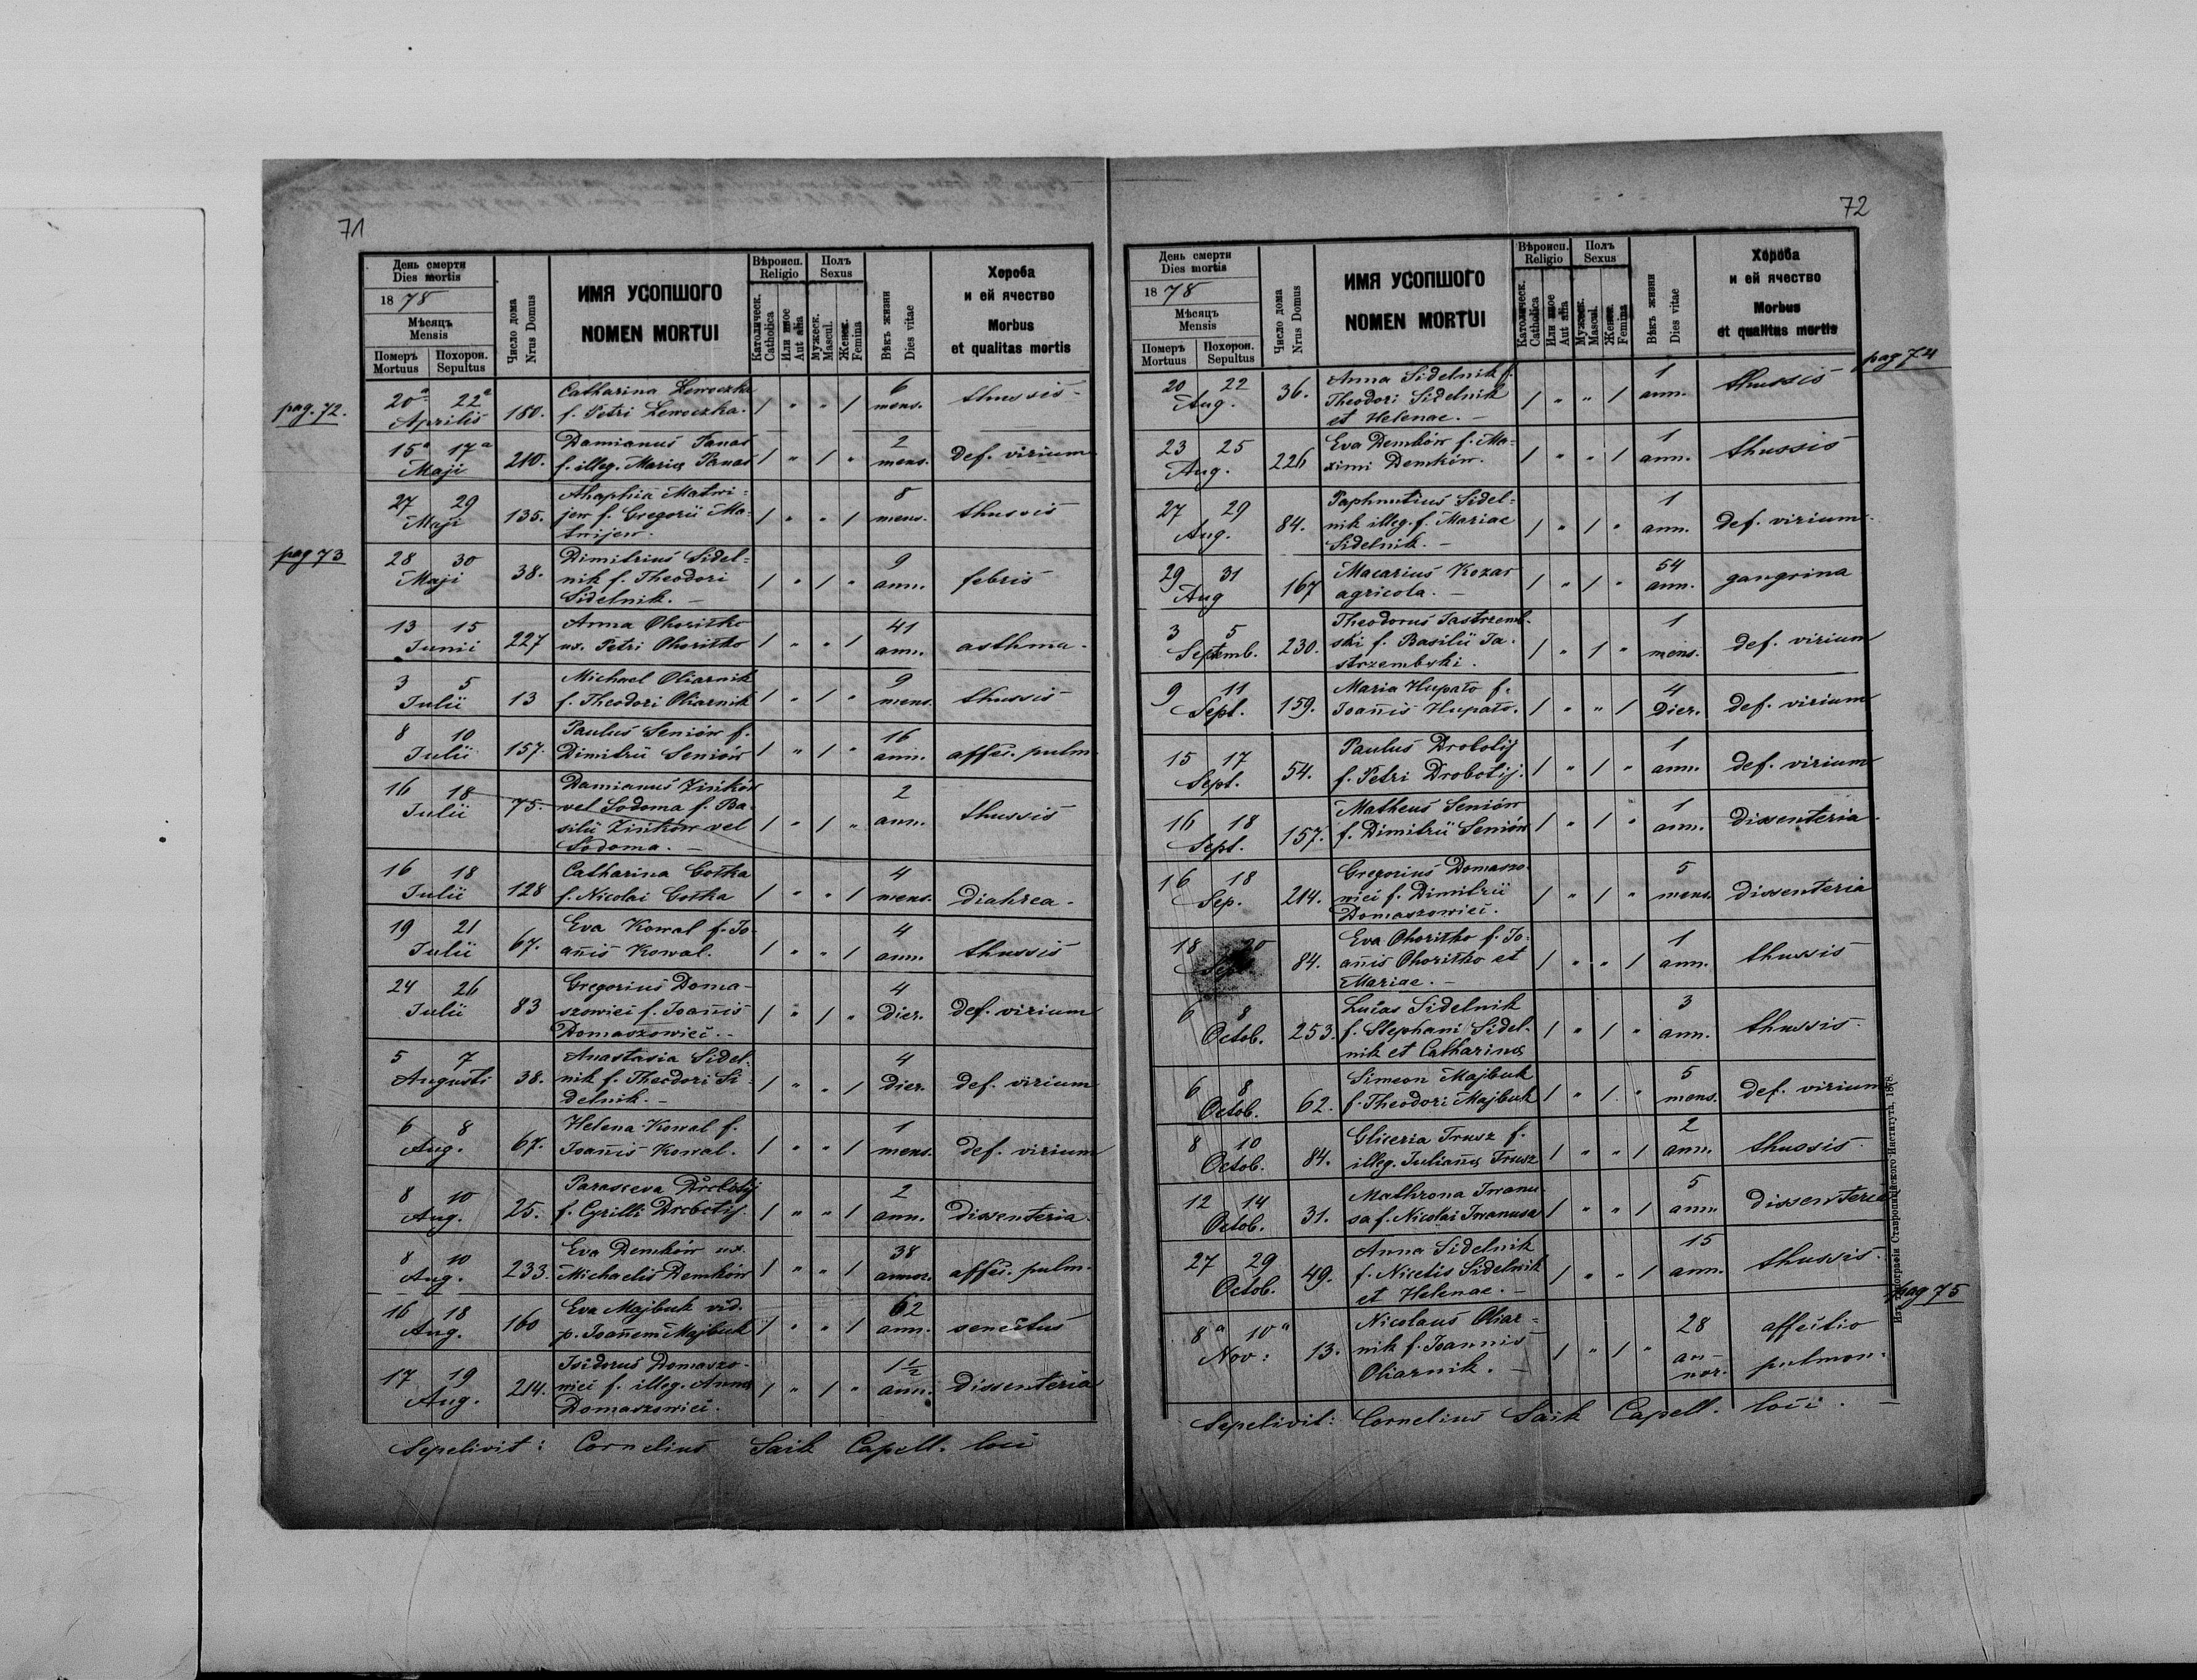 71
День смерти
Dies mortis
1878
Мѣсяцъ
Mensis
Померъ Похорон.
Mortuus Sepultus
Число дома
Nrus Domus
ИМЯ УСОПШОГО
NOMEN MORTUI
Вѣроисп.
Religio
Католическ.
Catholica
Или иное
Aut alia
Полъ
Sexus
Мужеск.
Mascul.
Женск.
Femina
Вѣкъ жизни
Dies vitae
Хороба
и ей ячество
Morbus
et qualitas mortis
pag. 72.
20a 22a Aprilis 180. Catharina Leweczka
f. Petri Leweczka. 1 " " 1 6 mens. thussis
15a 17a Maji 210. Damianus Panas
f. illeg. Mariae Panas 1 " 1 " 2 mens. def. virium
27 29 Maji 135. Ahaphia Matwi=
jew f. Gregorii Ma=
twijew. 1 " " 1 8 mens. thussis
pag 73
28 30 Maji 38. Dimitrius Sidel=
nik f. Theodori
Sidelnik. – 1 " 1 " 9 ann. febris
13 15 Junii 227 Anna Ohoritko
ux. Petri Ohoritko 1 " " 1 41 ann. asthma.
3 5 Julii 13 Michael Oliarnik
f. Theodori Oliarnik 1 " 1 " 9 mens. thussis
8 10 Julii 157. Paulus Seniów f.
Dimitrii Seniów 1 " 1 " 16 ann. affec. pulm.
16 18 Julii 75. Damianus Zińków
vel Sodoma f. Ba-
silii Zińków vel
Sodoma. – 1 " 1 " 2 ann. thussis
16 18 Julii 128 Catharina Gotka
f. Nicolai Gotka 1 " " 1 4 mens. diahrea.
19 21 Julii 67. Eva Kowal f. Jo-
anis Kowal. 1 " " 1 4 ann. thussis
24 26 Julii 83 Gregorius Doma-
szowici f. Joanis
Domaszowici. – 1 " 1 " 4 dier. def. virium
5 7 Augusti 38. Anastasia Sidel-
nik f. Theodori Si-
delnik. – 1 " " 1 4 dier. def. virium
6 8 Aug. 67. Helena Kowal f.
Joanis Kowal. 1 " " 1 1 mens. def. virium
8 10 Aug. 25. Parasceva Drobotij
f. Cyrilli Drobotij. 1 " " 1 2 ann. dissenteria.
8 10 Aug. 233. Eva Demków ux.
Michaelis Demków 1 " " 1 38 annor. affec. pulm.
16 18 Aug. 160 Eva Majbuk vid.
p. Joanem Majbuk 1 " " 1 62 ann. senectus
17 19 Aug. 214. Isidorus Domaszo-
wici f. illeg. Annae
Domaszowici. 1 " 1 " 1 1/2 ann. dissenteria
Sepelivit: Cornelius Saik Capell. loci
72
День смерти
Dies mortis
1878
Мѣсяцъ
Mensis
Померъ Похорон.
Mortuus Sepultus
Число дома
Nrus Domus
ИМЯ УСОПШОГО
NOMEN MORTUI
Вѣроисп.
Religio
Католическ.
Catholica
Или иное
Aut alia
Полъ
Sexus
Мужеск.
Mascul.
Женск.
Femina
Вѣкъ жизни
Dies vitae
Хороба
и ей ячество
Morbus
et qualitas mortis
pag 74
20 22 Aug. 36. Anna Sidelnik f.
Theodori Sidelnik
et Helenae. – 1 " " 1 1 ann. thussis
23 25 Aug. 226 Eva Demków f. Ma-
ximi Demków. 1 " " 1 1 ann. thussis
27 29 Aug. 84. Paphnutius Sidel=
nik illeg. f. Mariae
Sidelnik. – 1 " 1 " 1 ann. def. virium.
29 31 Aug 167 Macarius Kozar
agricola. – 1 " 1 " 54 ann. gangrina
3 5 Septemb. 230. Theodorus Jastrzemb-
ski f. Basilii Ja-
strzembski. 1 " 1 " 1 mens. def. virium
9 11 Sept. 159. Maria Hupało f.
Joanis Hupało. 1 " " 1 4 dier. def. virium
15 17 Sept. 54. Paulus Drobotij
f. Petri Drobotij. 1 " 1 " 1 ann. def. virium
16 18 Sept. 157. Matheus Seniów
f. Dimitrii Seniów 1 " 1 " 1 ann. dissenteria.
16 18 Sep. 214. Gregorius Domaszo-
wici f. Dimitrii
Domaszowici. 1 " 1 " 5 mens. dissenteria
18 20 Sept. 84. Eva Ohoritko f. Jo-
anis Ohoritko et
Mariae. – 1 " " 1 1 ann. thussis
6 8 Octob. 253. Lucas Sidelnik
f. Stephani Sidel-
nik et Catharinae 1 " 1 " 3 ann. thussis.
6 8 Octob. 62. Simeon Majbuk
f. Theodori Majbuk 1 " 1. " 5 mens. def. virium
8 10 Octob. 84. Gliceria Trusz f.
illeg. Julianae Trusz 1 " " 1 2 ann. thussis.
12 14 Octob. 31. Mathrona Iwanu-
sa f. Nicolai Iwanusa 1 " " 1 5 ann. dissenteria
27 29 Octob. 49. Anna Sidelnik
f. Nicetis Sidelnik
et Helenae. – 1 " " 1 15 ann. thussis.
pag 75
8a 10a Nov: 13. Nicolaus Oliar=
nik f. Joannis
Oliarnik. – 1 " 1 " 28 an-
nor. affectio
pulmon.
Sepelivit: Cornelius Saik Capell. loci. –
Изъ типографіи Ставропигійского Института, 1878.